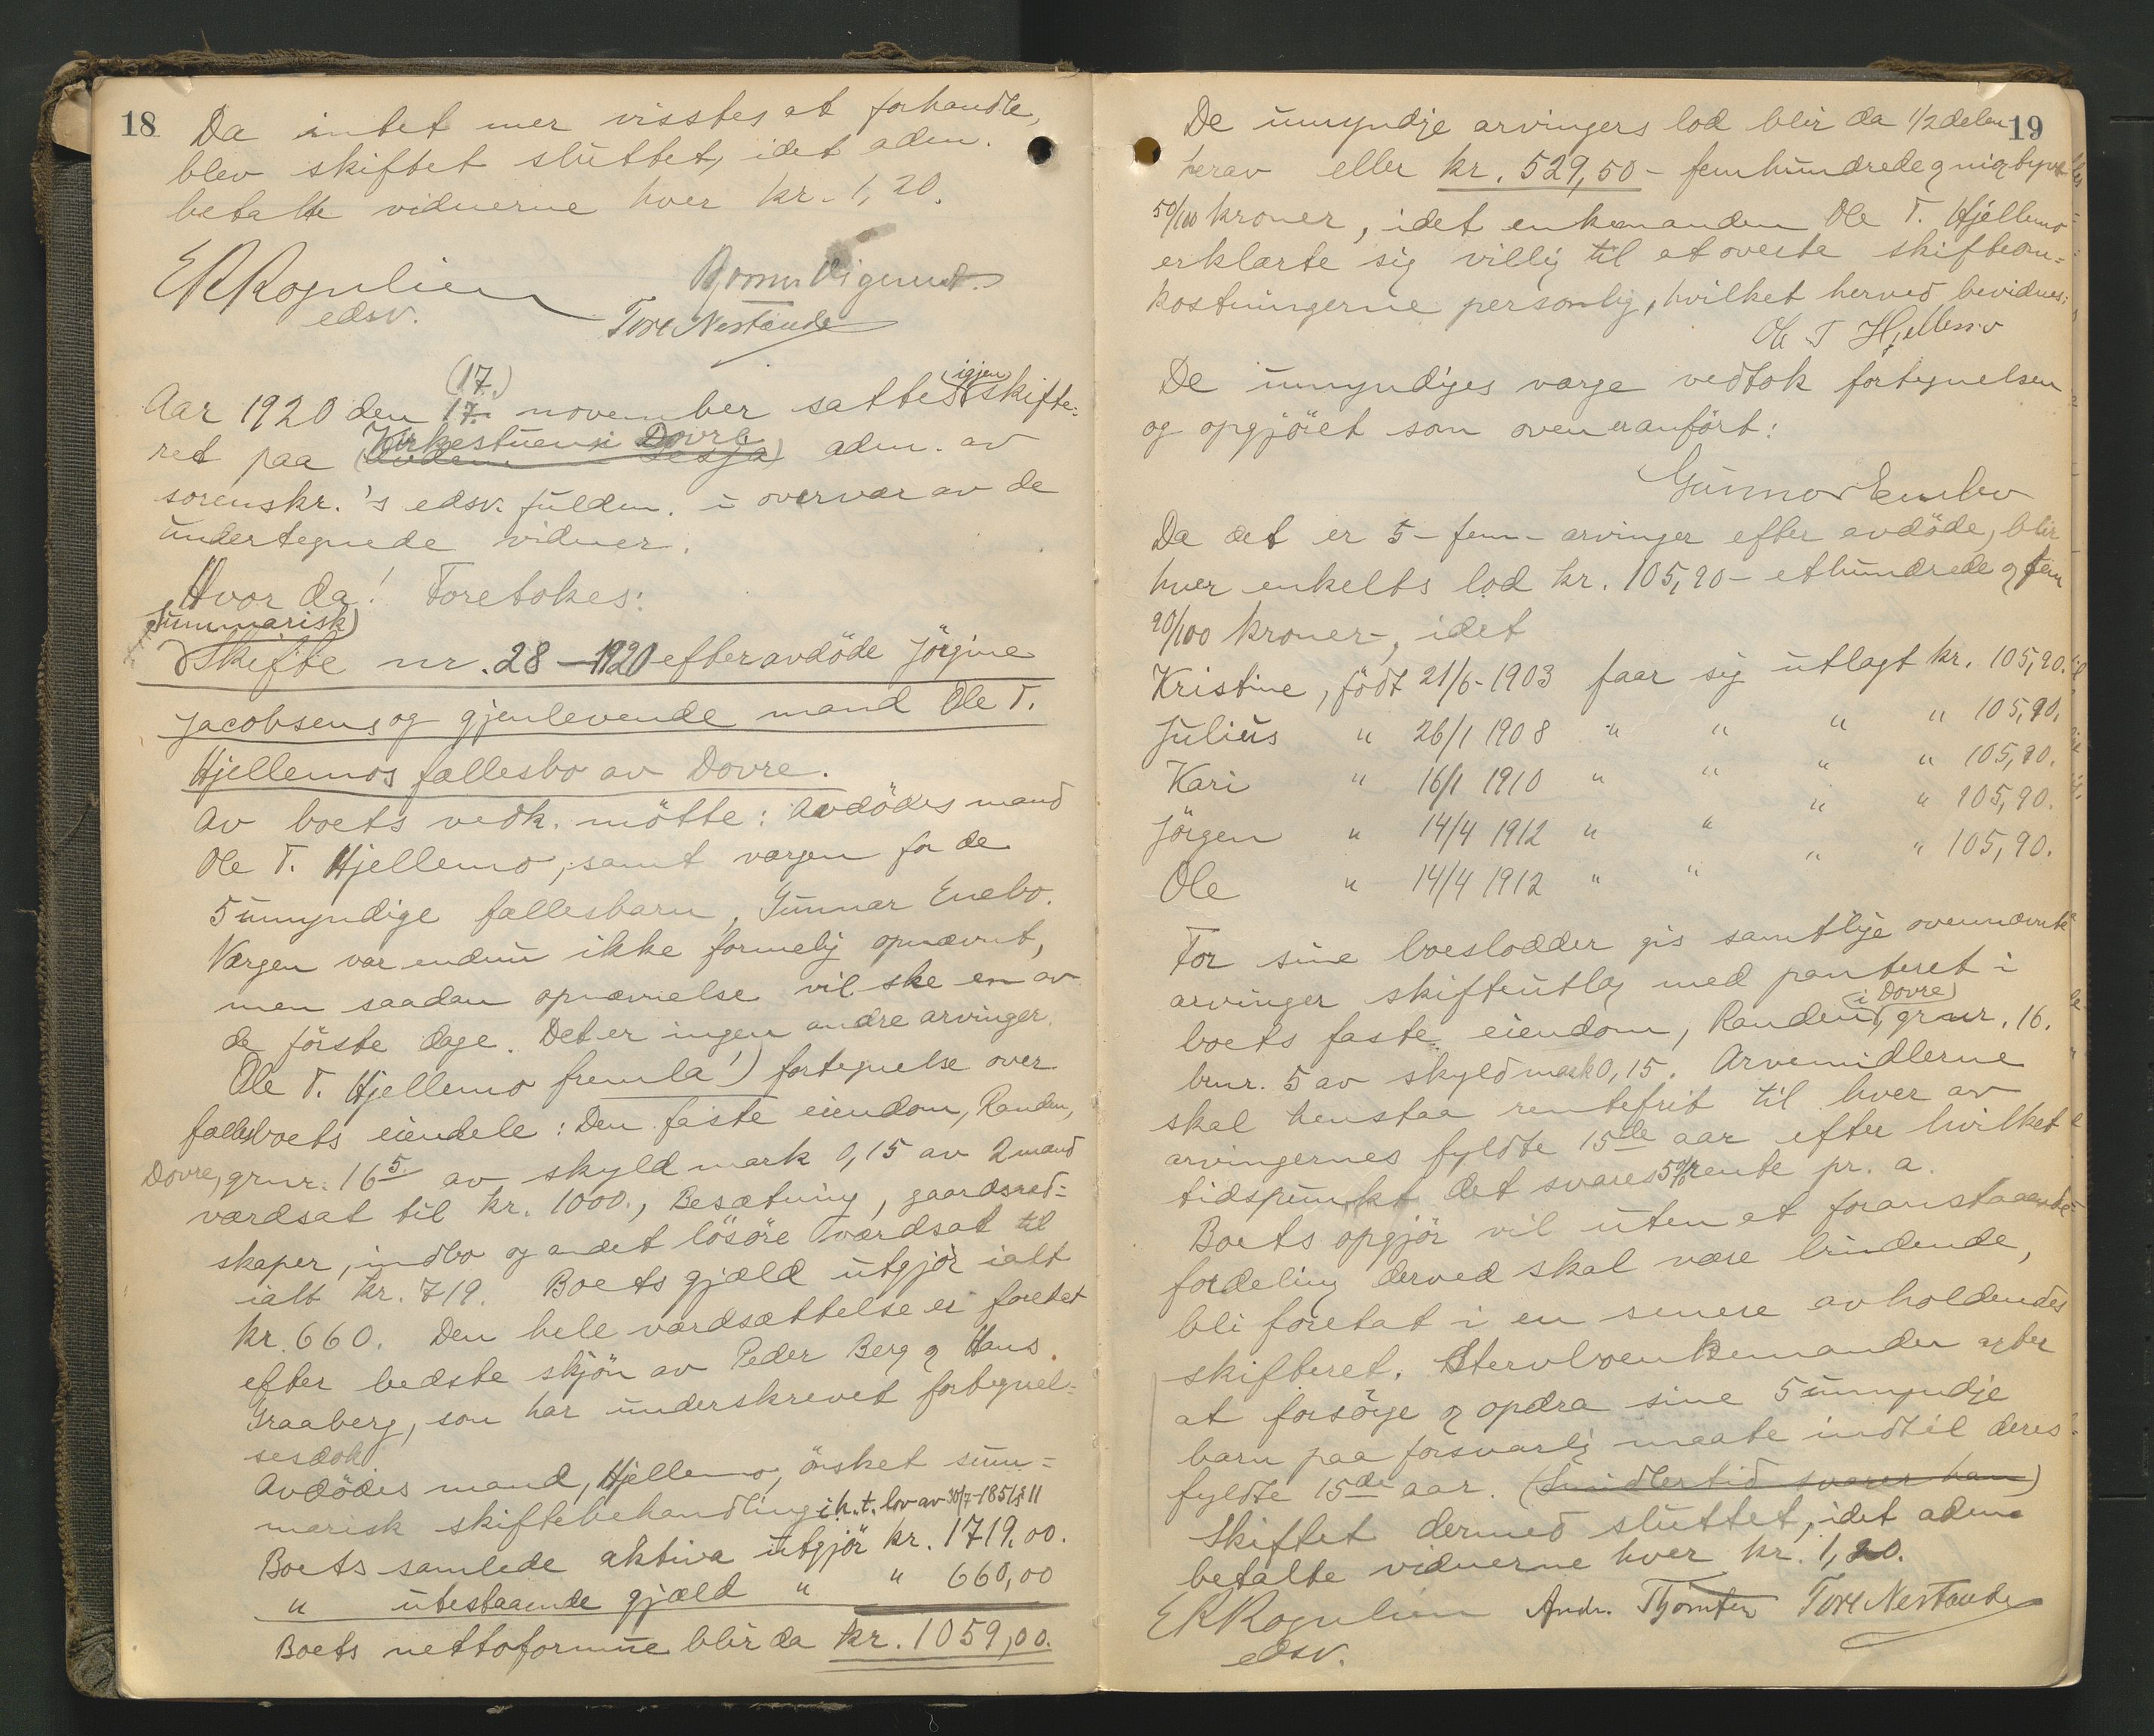 18
Da intet mer visstes at forhandle,
blev skiftet sluttet, idet adm.
betalte vidnerne hver kr. 1,20.
edsv.
Tore Nestande
(17.)
Aar 1920 den 17. november sattes igjen skifte-
ret paa Kirkestuen i Dovre adm. av
sorenskr.'s edsv. fuldm. i overvær av de
undertegnede vidner.
Hvor da! Foretokes:
Summarisk)
Skifte nr. 28 - 1920 efter avdöde Jörgine
Jacobsens og gjenlevende mand Ole T.
Hjellemos fællesbo av Dovre.
Av boets vedk. mötte: Avdödes mand
Ole T. Hjellemo, samt vægen for de
5 umyndige fællesbarn, Gunnar Enebo.
Værgen var endnu ikke formelig opnævnt,
men saadan opnævnelse vil ske en av
de förste dage. Det er ingen andre arvinger.
Ole T. Hjellemo fremla!) fortegnelse over
fællesboets eiendele: Den faste eiendom, Randen,
Dovre, grnr. 16 5 av skyld mark 0,15 av 2 mænd
værdsat til kr. 1000., Besætning, gaardsred-
skaper, indbo og andet lösöre værdsat til
ialt kr. 719. Boets gjæld utgjör ialt
kr. 660. Den hele værdsættelse er foretat
efter bedste skjön av Peder Berg og Hans
Graaberg, som har underskrevet fortegnel-
sesdok.
Avdödes mand, Hjellemo, önsket sum-
marisk skiftebehandling i h. t. lov av 30/7-1851 § 11
Boets samlede aktiva utgjör kr. 1719.00.
" utestaaende gjæld " " 660,00
Boets nettoformue blir da kr. 1059,00.
19
De umyndige arvingers lod blir da 1/2 delen
herav eller kr. 529,50 - femhundrede og niogtyve
50/100 kroner, idet enkemanden Ole T. Hjellemo
erklærte sig villig til at overta skifteom-
kostningerne personlig, hvilket herved bevidnes:
Ole T Hjellemo
De umyndiges værge vedtok fortegnelsen
og opgjöret som oven er anfört:
Gunnar Enebo
Da det er 5 - fem - arvinger efter avdöde, blir
hver enkelts lod kr. 105,90 - ethundrede og fem
90/100 kroner -, idet
Kristine, födt 21/6-1903 faar sig utlagt kr. 105,90.
Julius " 26/1 1908 " " " " 105,90.
Kari " 16/1 1910 " " " " 105,90.
Jörgen " 14/4 1912 " " " " 105,90.
Ole " 14/4 1912 " " " " 105,90.
For sine boeslodder gis samtlige ovennævnte
arvinger skifteutlæg med panteret i
boets faste eiendom, Randen i Dovre, grnr. 16.
brnr. 5 av skyld mark 0,15. Arvemidlerne
skal henstaa rentefrit til hver av
arvingernes fyldte 15de aar efter hvilket
tidspunkt det svares 5% rente pr. a.
Boets opgjör vil uten at foranstaaende
fordeling derved skal være bindende,
bli foretat i en senere avholdendes
skifteret. enkemanden agter
at forsörge og opdra sine 5 umyndige
barn paa forsvarlig maate indtil deres
fyldte 15de aar. (Imidlertid svarer han)
Skiftet dermed sluttet, idet adm.
betalte vidnerne hver kr. 1,20.
Tore Nestande
edsv.